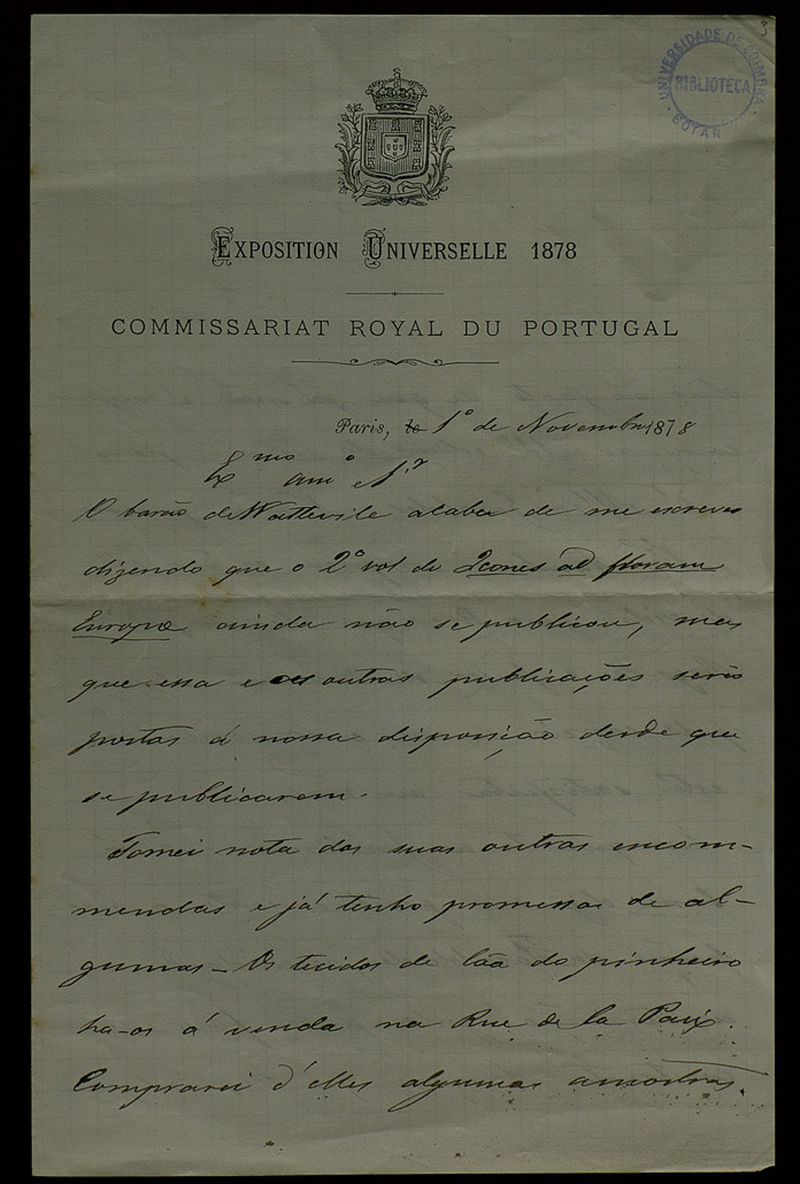 3
UNIVERSIDADE DE COIMBRA
BIBLIOTECA
BOTAN
EXPOSITION UNIVERSELLE 1878
COMMISSARIAT ROYAL DU PORTUGAL
Paris, le 1º de Novembro 1878
Exmo amº e Sr
O barão de Watteville acaba de me escrever
dizendo que o 2º vol de Icones ad floram
Europæ ainda não se publicou, mas
que essa e as outras publicações serão
postas á nossa disposição desde que
se publicarem.
Tomei nota das suas outras incom-
mendas e já tenho promessa de al-
gumas - Os tecidos de lãa do pinheiro
ha-os á venda na Rue de la Paix.
Comprarei d'elles algumas amostras.